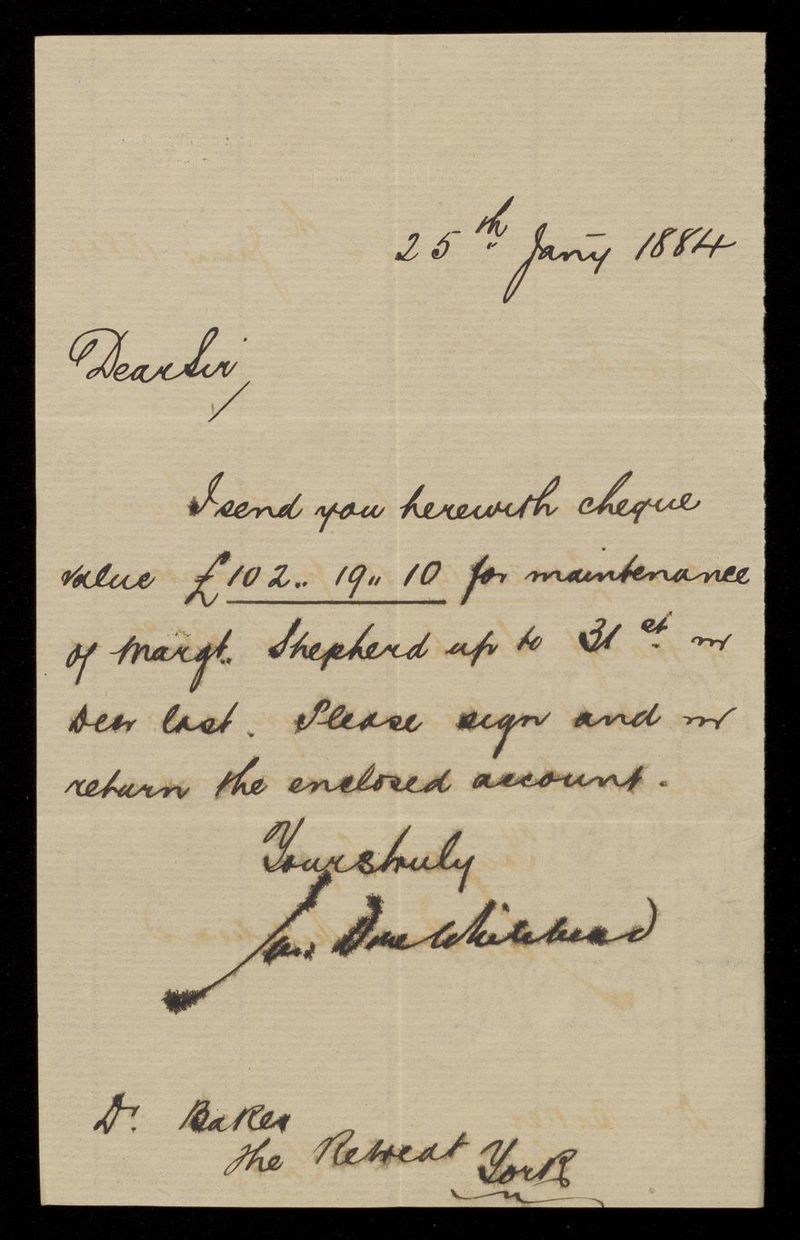 25th Jany 1884
Dear Sir,
I send you herewith cheque
value £102.. 19.. 10 for maintenance
of Margt. Shepherd up to 31st.
Decr last. Please sign and
return the enclosed account.
Yours truly
Whitehead
Dr. Baker
The Retreat York